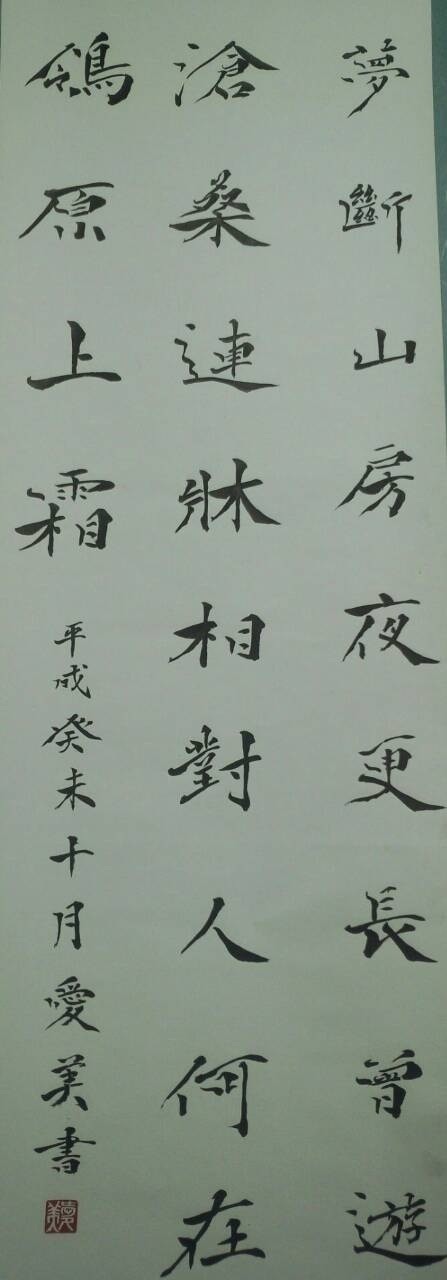 夢斷山房夜更長曾遊
滄桑連牀相對人何在
鴒原上霜
平成癸未十月愛美書